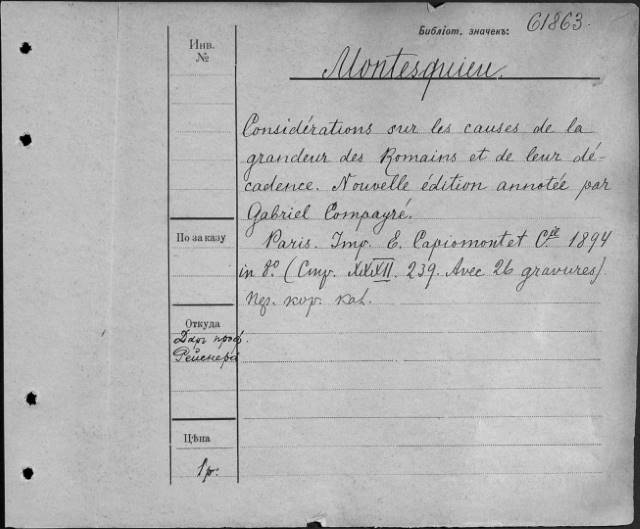 Библіот. значекъ: 61863.
Инв. №
Montesquieu.
Considérations sur les causes de la
grandeur des Romains et de leur dé-
cadence. Nouvelle édition annotée par
Gabriel Compayré.
По заказу
Paris. Imp. E. Capiomont et Cie 1894
in 8.o (Стр. XXXII. 239. Avec 26 gravures).
кор.
Откуда
Даръ проф.
Рейснера
Цѣна
1 р.